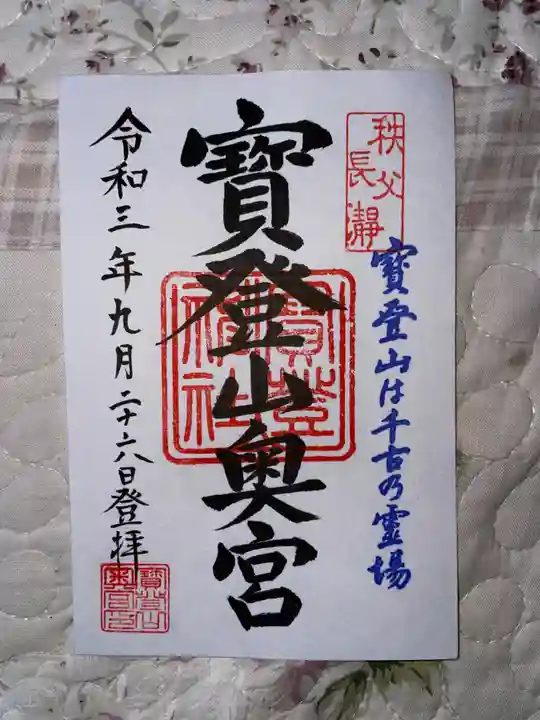 秩父
長瀞
寶登山は千古乃霊場
寶登山奥宮
寶登
神社
令和三年九月二十六日登拝
寶登山
奥宮印